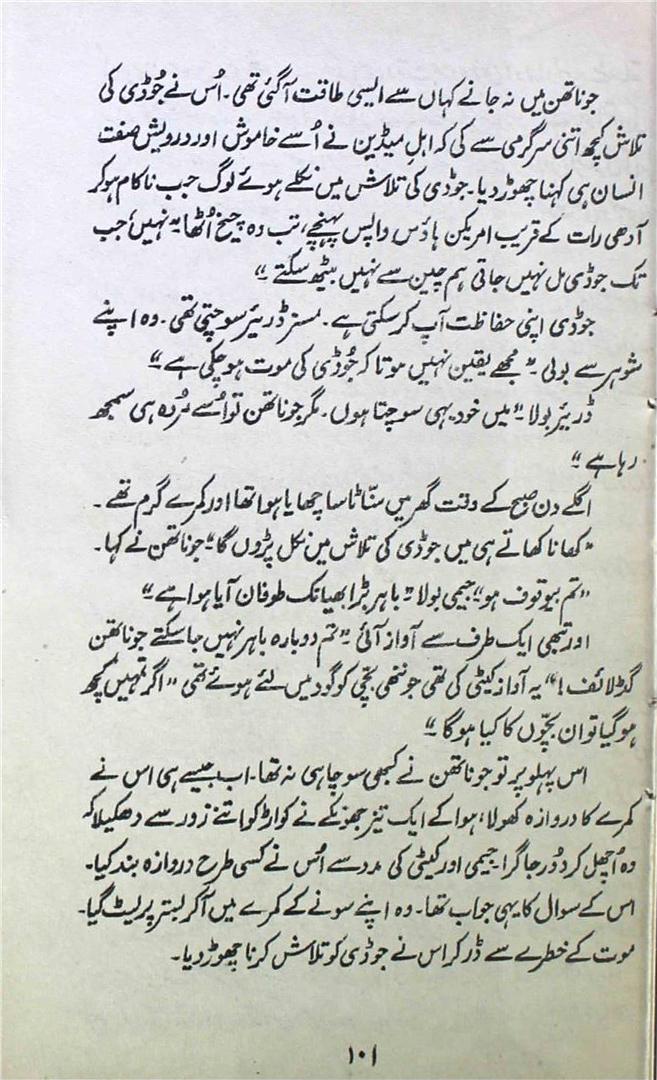 جوناتھن میں نہ جانے کہاں سے ایسی طاقت آگئی تھی۔ اُس نے جُوڈی کی
تلاش کچھ اتنی سرگرمی سے کی کہ اہلِ میڈین نے اُسے خاموش اور درویش صفت
انسان ہی کہنا چھوڑ دیا۔ جوڈی کی تلاش میں نکلے ہوئے لوگ جب ناکام ہوکر
آدھی رات کے قریب امریکن ہاؤس واپس پہنچے، تب وہ چیخ اُٹھا ”نہیں‘ جب
تک جوڈی مل نہیں جاتی ہم چین سے نہیں بیٹھ سکتے“
جوڈی اپنی حفاظت آپ کرسکتی ہے۔ مسز ڈریئر سوچتی تھی۔ وہ اپنے
شوہر سے بولی۔ ”مجھے یقین نہیں ہوتا کہ جُوڈی کی موت ہوچکی ہے“
ڈریئر بولا ”میں خود یہی سوچتا ہوں۔ مگر جوناتھن تو اُسے مُردہ ہی سمجھ
رہا ہے“
اگلے دن صبح کے وقت گھر میں سنّاٹا سا چھایا ہوا تھا اور کمرے گرم تھے۔
”کھانا کھاتے ہی میں جوڈی کی تلاش میں نکل پڑوں گا“ جوناتھن نے کہا۔
”تم بیوقوف ہو“ جیمی بولا ”باہر بڑا بھیانک طوفان آیا ہوا ہے“
اور تبھی ایک طرف سے آواز آئی۔ ”تم دوبارہ باہر نہیں جاسکتے جوناتھن
گڈلائف!“ یہ آواز کیٹی کی تھی جو ننھی بچّی کو گود میں لئے ہوئے تھی ”اگر تمہیں کچھ
ہوگیا تو ان بچّوں کا کیا ہوگا“
اس پہلو پر تو جوناتھن نے کبھی سوچا ہی نہ تھا۔ اب جیسے ہی اس نے
کمرے کا دروازہ کھولا، ہوا کے ایک تیز جھونکے نے کواڑ کو اتنے زور سے دھکیلا کہ
وہ اُچھل کر دُور جاگرا۔ جیمی اور کیٹی کی مدد سے اُس نے کسی طرح دروازہ بند کیا۔
اس کے سوال کا یہی جواب تھا۔ وہ اپنے سونے کے کمرے میں آکر بستر پر لیٹ گیا۔
موت کے خطرے سے ڈر کر اس نے جوڈی کو تلاش کرنا چھوڑ دیا۔
۱۰۱